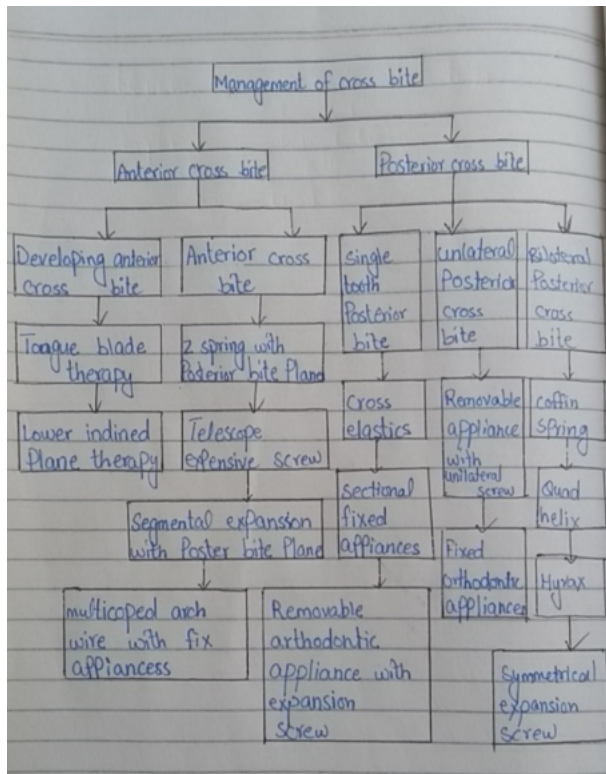 Management of cross bite
Anterior cross bite
Posterior cross bite
Developing anterior
cross bite
Tongue blade
therapy
Lower indined
Plane therapy
Anterior cross
bite
Z spring with
Posterior bite Pland
Telescope
expensive screw
Segmental expansion
with Poster bite Plane
multicoped arch
wire with fix
appiancess
single
tooth
Posterior
bite
cross
elastics
Sectional
fixed
appiances
Removable
arthodontic
appliance with
expansion
screw
unilateral
Posterior
cross
bite
Removable
appliance
with
unilateral
screw
Fixed
orthodontic
appliances
Bilateral
Posterior
cross
bite
coffin
spring
Quad
helix
Hyrax
Symmetrical
expansion
screw